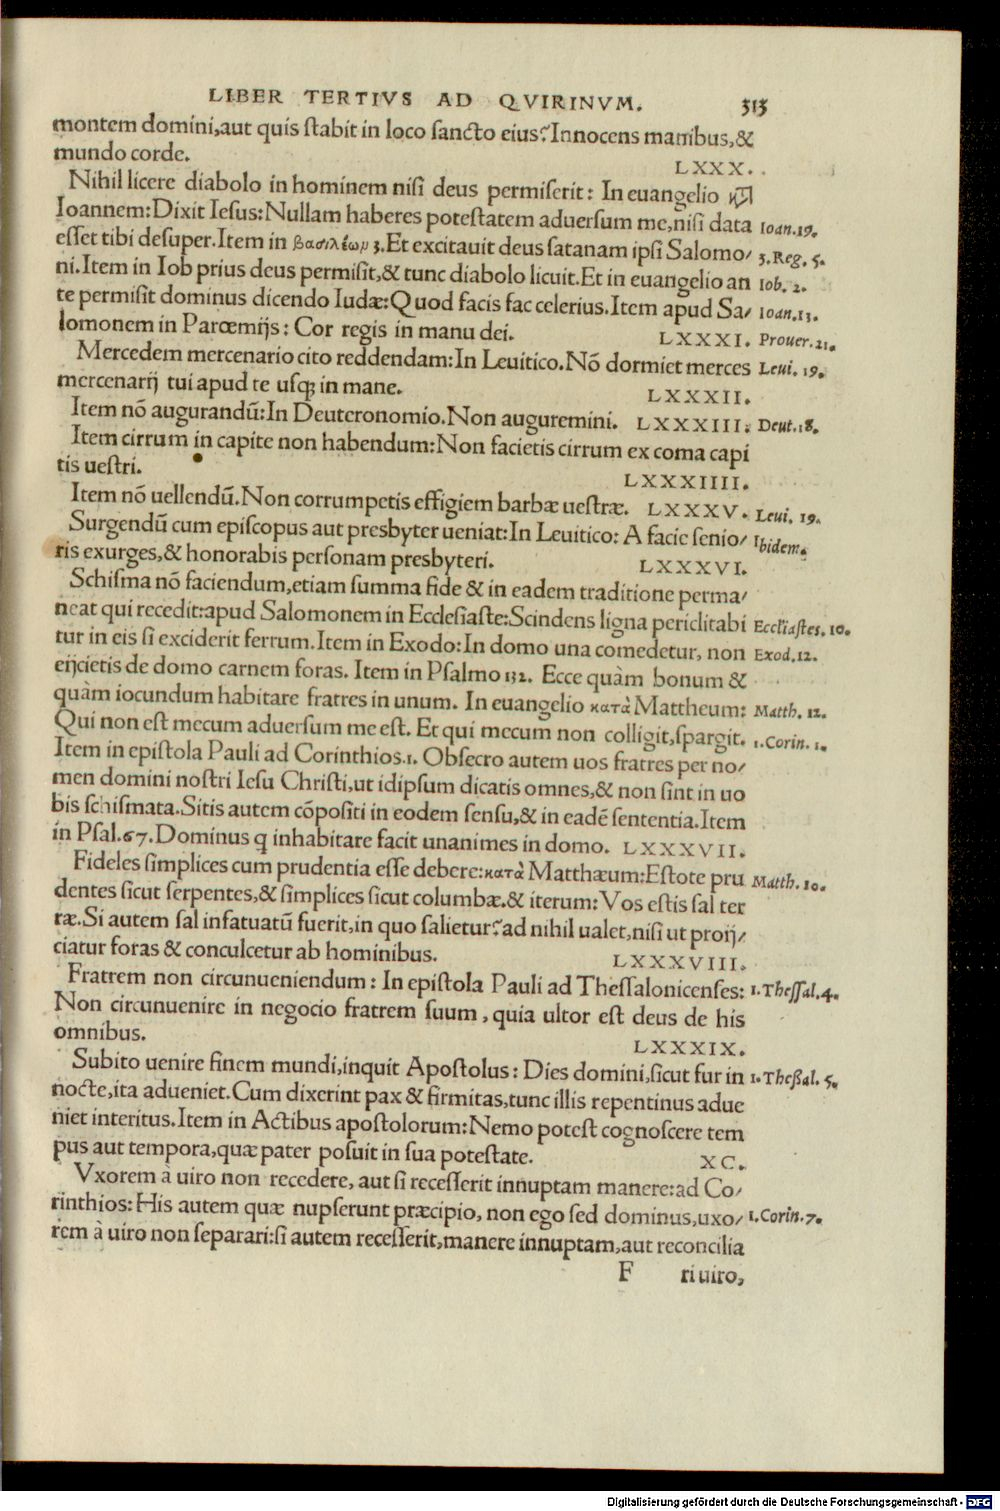 LIBER TERTIVS AD QVIRINVM. 313
montem domini, aut quis stabit in loco sancto eius? Innocens manibus, &
mundo corde. LXXX.
Nihil licere diabolo in hominem nisi deus permiserit: In euangelio
Ioannem: Dixit Iesus: Nullam haberes potestatem aduersum me, nisi data Ioan.19.
esset tibi desuper. Item in βασιλέωμ 3. Et excitauit deus satanam ipsi Salomo/ 3.Reg. 5.
ni. Item in Iob prius deus permisit, & tunc diabolo licuit. Et in euangelio an Iob. 2.
te permisit dominus dicendo Iudæ: Quod facis fac celerius. Item apud Sa/ Ioan.13.
lomonem in Parœmijs: Cor regis in manu dei. LXXXI. Prouer.21.
Mercedem mercenario cito reddendam: In Leuitico. Nõ dormiet merces Leui. 19.
mercenarij tui apud te usq; in mane. LXXXII.
Item nõ augurandũ: In Deuteronomio. Non auguremini. LXXXIII. Deut.18.
Item cirrum in capite non habendum: Non facietis cirrum ex coma capi
tis uestri. LXXXIIII.
Item nõ uellendũ. Non corrumpetis effigiem barbæ uestræ. LXXXV. Leui. 19.
Surgendũ cum episcopus aut presbyter ueniat: In Leuitico: A facie senio/ Ibidem.
ris exurges, & honorabis personam presbyteri. LXXXVI.
Schisma nõ faciendum, etiam summa fide & in eadem traditione perma/
neat qui recedit: apud Salomonem in Ecclesiaste: Scindens ligna periclitabi Eccliastes. 10.
tur in eis si exciderit ferrum. Item in Exodo: In domo una comedetur, non Exod.12.
eijcietis de domo carnem foras. Item in Psalmo 132. Ecce quàm bonum &
quàm iocundum habitare fratres in unum. In euangelio κατὰ Mattheum: Matth. 12.
Qui non est mecum aduersum me est. Et qui mecum non colligit, spargit. 1.Corin. 1.
Item in epistola Pauli ad Corinthios.1. Obsecro autem uos fratres per no/
men domini nostri Iesu Christi, ut idipsum dicatis omnes, & non sint in uo
bis schismata. Sitis autem cõpositi in eodem sensu, & in eadẽ sententia. Item
in Psal.67. Dominus q inhabitare facit unanimes in domo. LXXXVII.
Fideles simplices cum prudentia esse debere: κατὰ Matthæum: Estote pru Matth. 10.
dentes sicut serpentes, & simplices sicut columbæ. & iterum: Vos estis sal ter
ræ. Si autem sal infatuatũ fuerit, in quo salietur? ad nihil ualet, nisi ut proij/
ciatur foras & conculcetur ab hominibus. LXXXVIII.
Fratrem non circunueniendum: In epistola Pauli ad Thessalonicenses: 1.Thessal.4.
Non circunuenire in negocio fratrem suum, quia ultor est deus de his
omnibus. LXXXIX.
Subito uenire finem mundi, inquit Apostolus: Dies domini, sicut fur in 1.Theßal. 5.
nocte, ita adueniet. Cum dixerint pax & firmitas, tunc illis repentinus adue
niet interitus. Item in Actibus apostolorum: Nemo potest cognoscere tem
pus aut tempora, quæ pater posuit in sua potestate. XC.
Vxorem à uiro non recedere, aut si recesserit innuptam manere: ad Co/
rinthios: His autem quæ nupserunt præcipio, non ego sed dominus, uxo/ 1.Corin.7.
rem à uiro non separari: si autem recesserit, manere innuptam, aut reconcilia
F ri uiro,
Digitalisierung gefördert durch die Deutsche Forschungsgemeinschaft - DFG